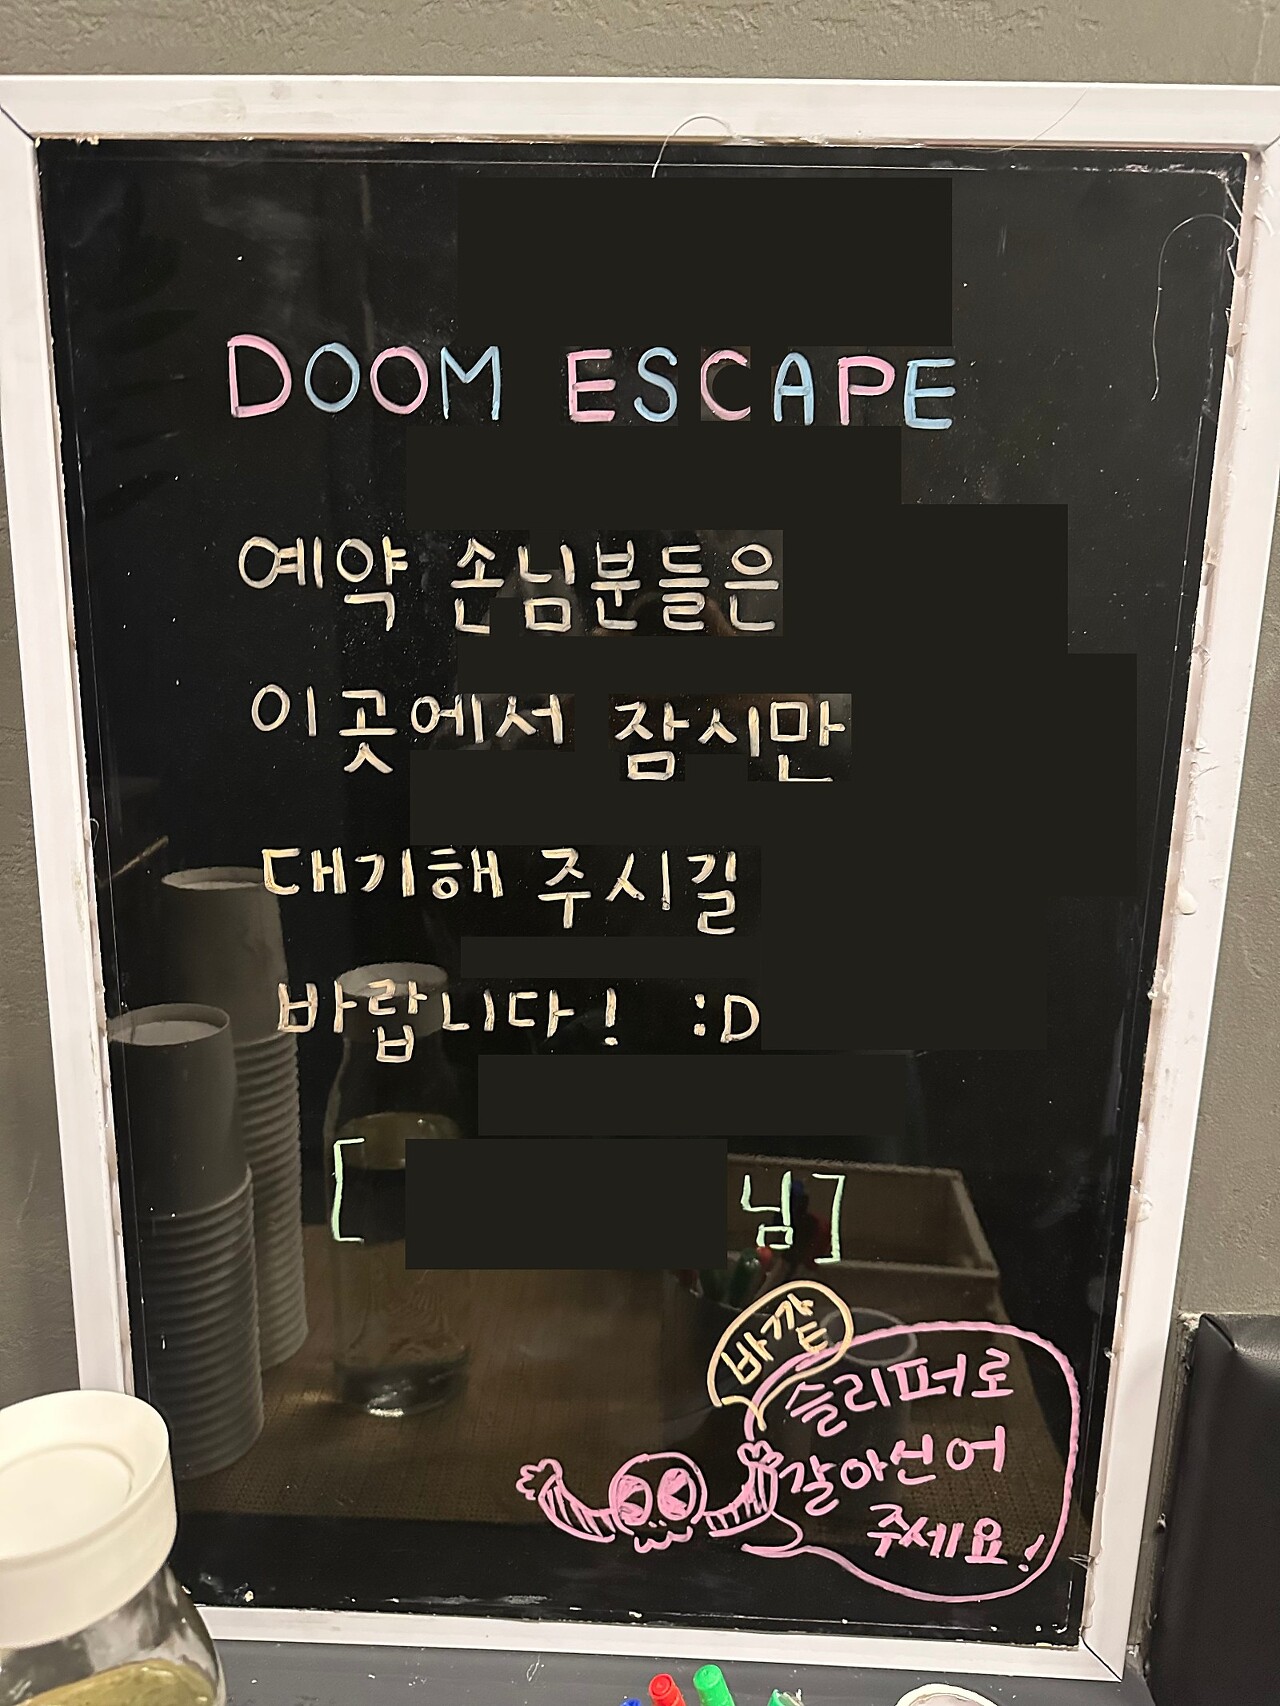 DOOM ESCAPE
예약 손님분들은
이곳에서 잠시만
대기해 주시길
바랍니다! :D
[ 님]
바깥
슬리퍼로
갈아신어
주세요!